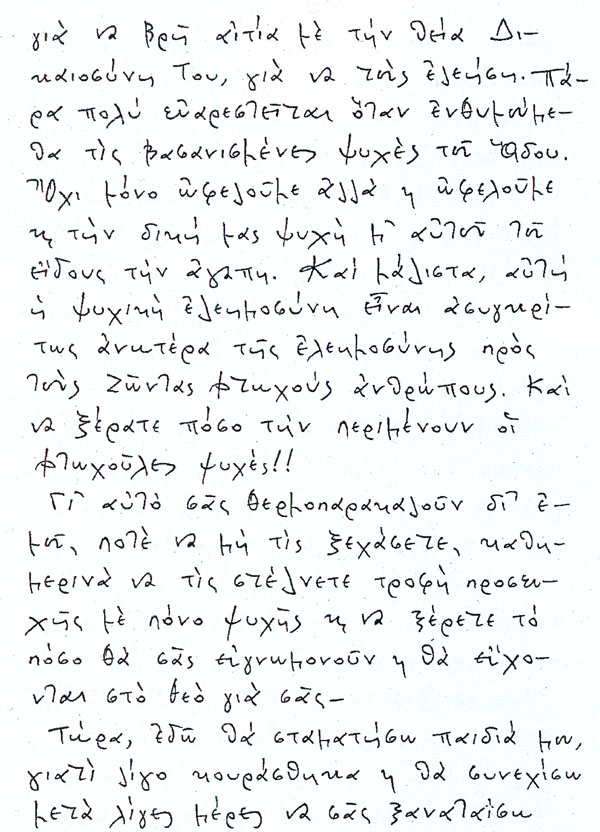 γιὰ νὰ βρῆ αἰτία μὲ τὴν θεία Δι-
καιοσύνη Του, γιὰ νὰ τοὺς ἐλεήση. Πά-
ρα πολύ εὐαρεστεῖται ὅταν ἐνθυμούμε-
θα τὶς βασανισμένες ψυχὲς τοῦ Ἅδου.
Ὄχι μόνο ὠφελοῦμε ἀλλὰ κ ὠφελοῦμε
κ τὴν δική μας ψυχὴ μ᾿ αὐτοῦ τοῦ
εἴδους τὴν ἀγάπη. Καὶ μάλιστα, αὐτή
ἡ ψυχικὴ ἐλεημοσύνη εἶναι ἀσυγκρί-
τως ἀνωτέρα τῆς ἐλεημοσύνης πρὸς
τοὺς ζῶντας φτωχούς ἀνθρώπους. Καὶ
νὰ ξέρατε πόσο τὴν περιμένουν οἱ
φτωχοῦλες ψυχὲς!!
Γι᾿ αὐτὸ σᾶς θερμοπαρακαλοῦν δι᾿ ἐ-
μοῦ, ποτὲ νὰ μὴ τὶς ξεχάσετε, καθη-
μερινὰ νὰ τὶς στέλνετε τροφὴ προσευ-
χῆς μὲ πόνο ψυχῆς κ νὰ ξέρετε τὸ
πόσο θὰ σᾶς εὐγνωμονοῦν κ θὰ εὔχο-
νται στὸ θεὸ γιὰ σᾶς–
Τώρα, ἐδῶ θὰ σταματήσω παιδιά μου,
γιατὶ λίγο κουράσθηκα κ θὰ συνεχίσω
μετὰ λίγες μέρες νὰ σᾶς ξαναταΐσω